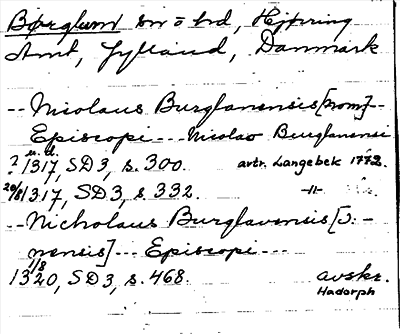 Børglum sn o hd, Hjørring
Amt, Jylland, Danmark
-- Nicolaus Burglanensis [nom] --
Episcopi --- Nicolao Burglanensi
? u.d. 1317, SD3, s. 300. avtr. Langebek 1772.
20/8 1317, SD3, s. 332. -"-
-- Nicholaus Burglavensis [ɔ: -
nensis] -- Episcopi ---
1/8 1320, SD3, s. 468. avskr.
Hadorph